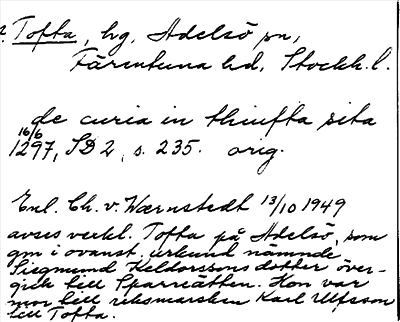 Tofta, hg, Adelsö sn,
Färentuna hd, Stockh. l.
de curia in thiufta sita
16/6
1297, SD 2, s. 235. orig.
Enl. Ch. v. Wærnstedt 13/10 1949
avses verkl. Tofta på Adelsö, som
gm i ovanst. urkund nämnde
Siegmund Keldorssons dotter över-
gick till Sparreätten. Hon var
mor till riksmarsken Karl Ulfsson
till Tofta.